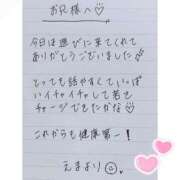 お兄様へ♡
今日は遊びに来てくれて
ありがとうございました♪
とっても話やすくていっぱ
いイチャイチャして君を
チャージできたかな♡
これからも健康第一！
えまより☺